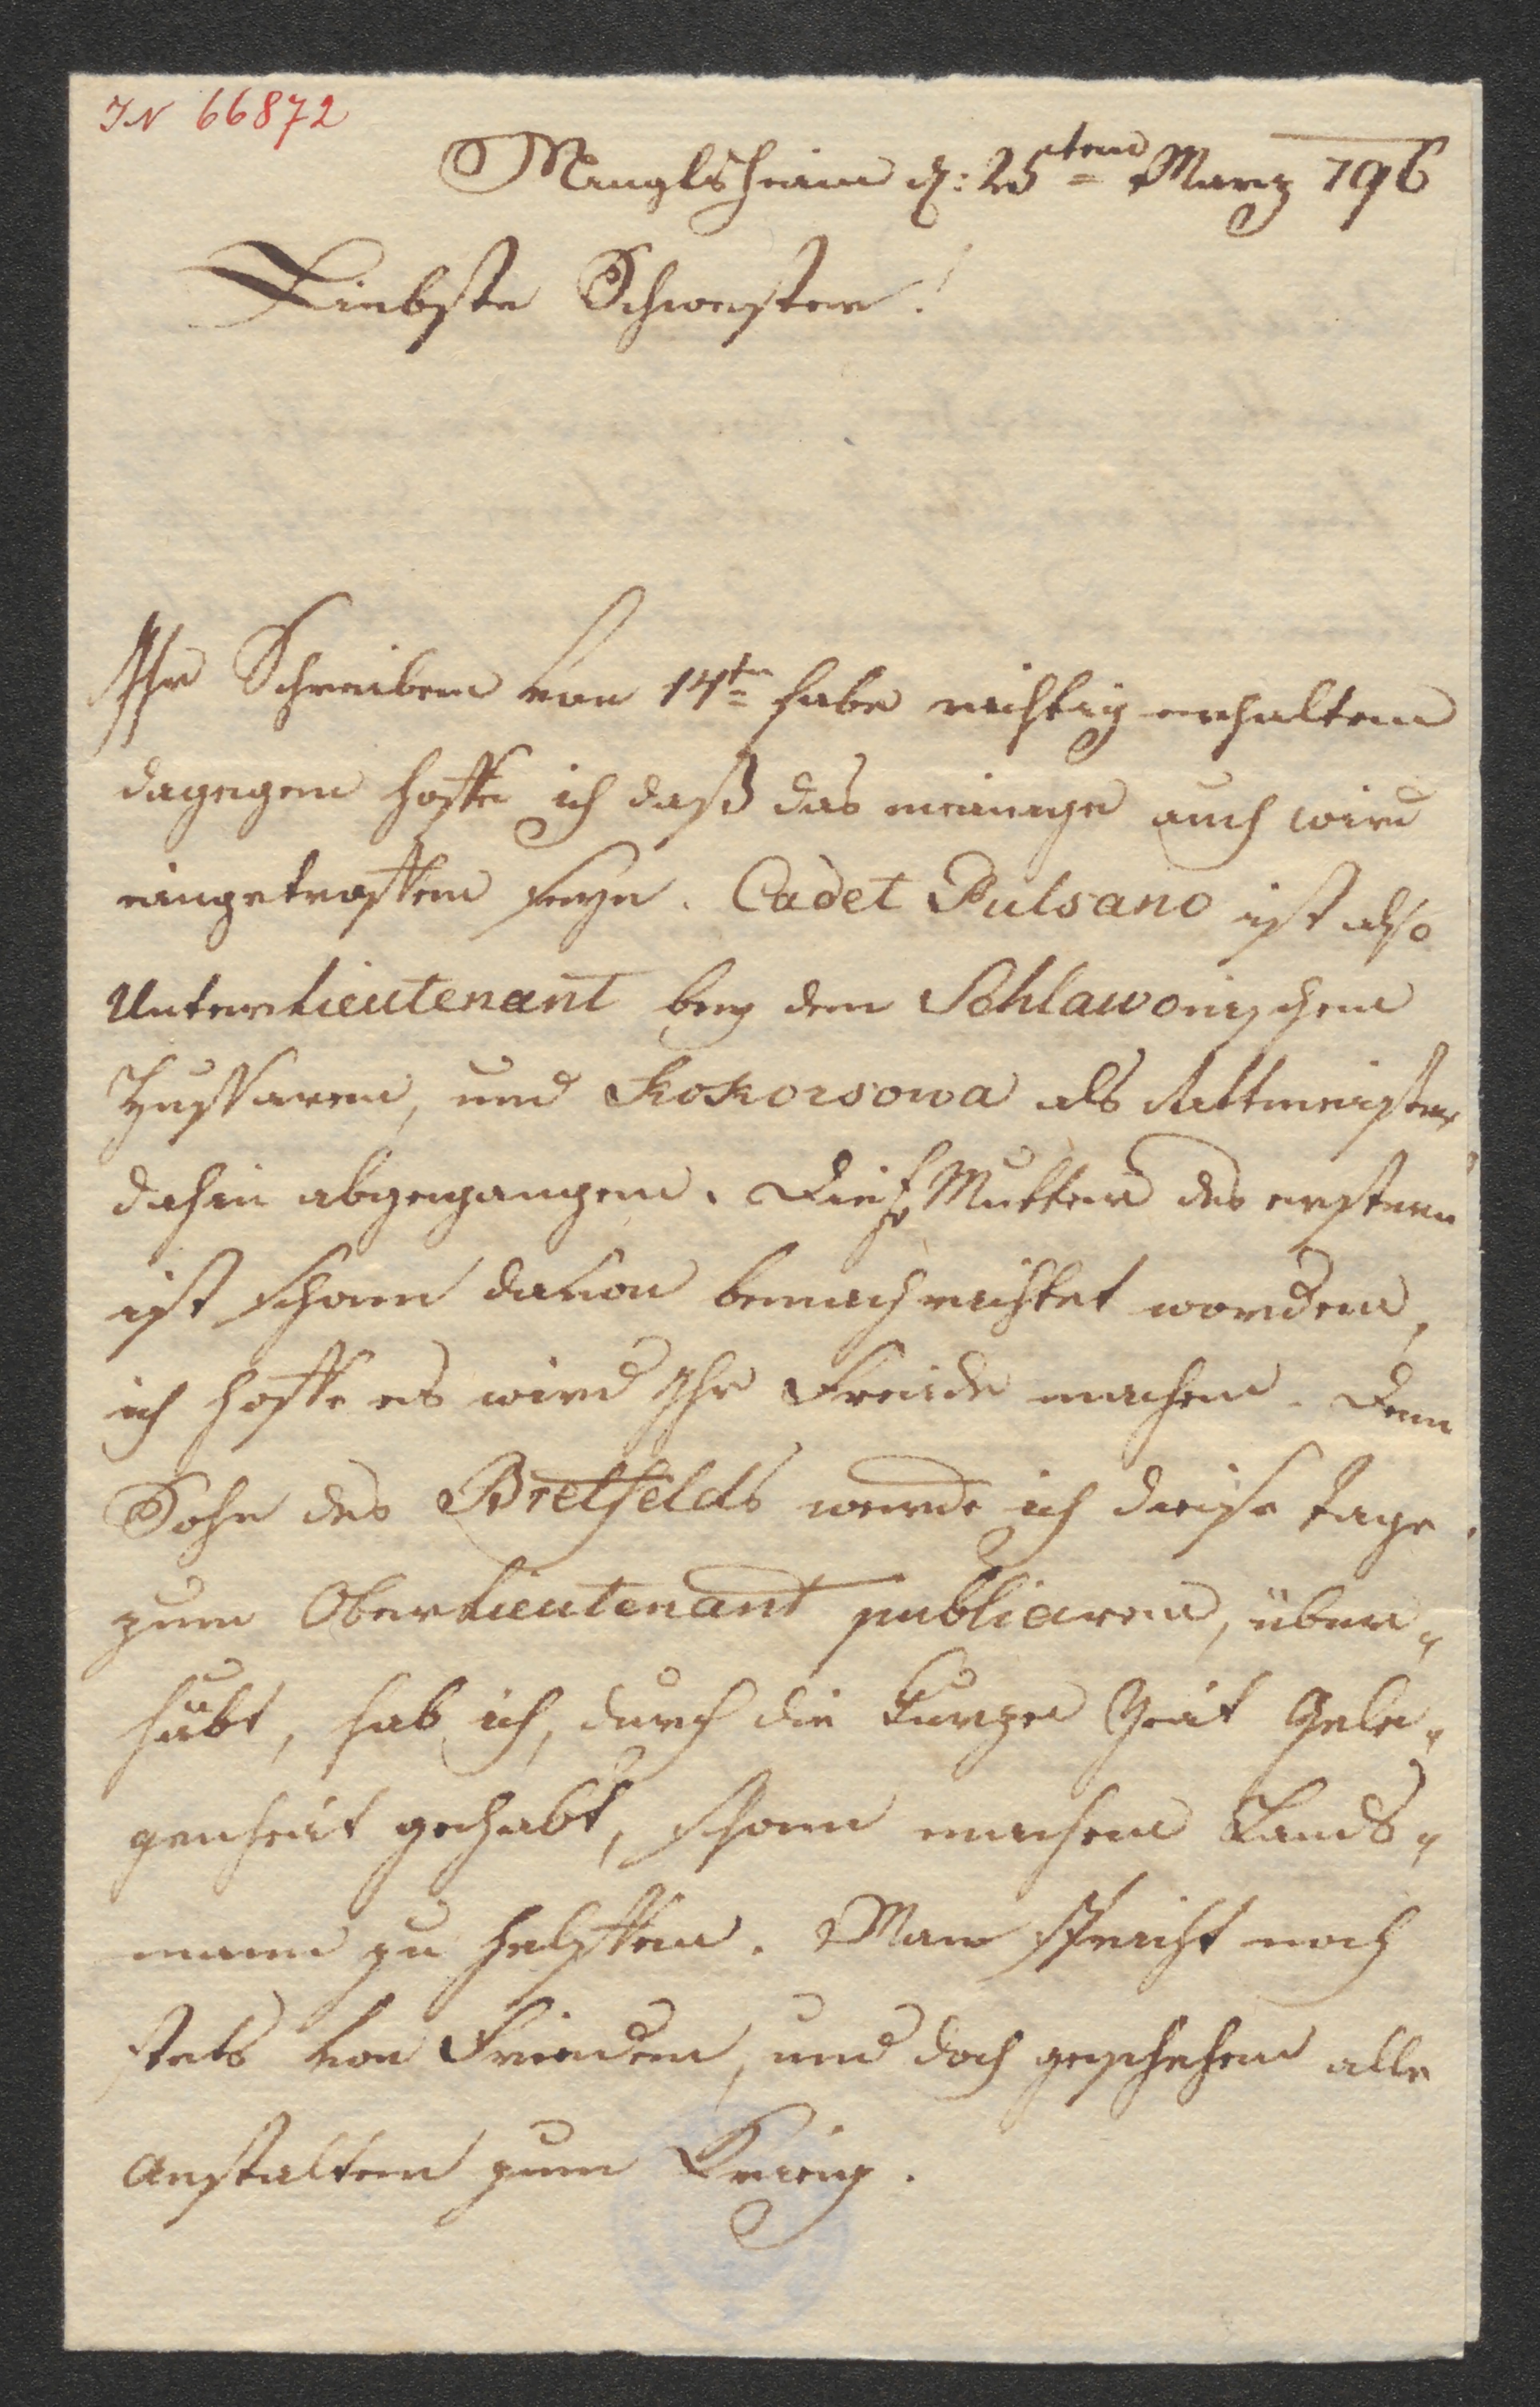 IN 66872
Minglsheim d: 25ten Marz 796
Liebste Schwester!
Ihr Schreiben von 14ten habe richtig erhalten
dagegen hoffe ich daß das meinige auch wird
eingetroffen seyn. Cadet Pulsano ist also
Unterlieutenant bey den Schlawonischen
Hussaren, und Kokorsowa als Rittmeister
dahin abgegangen. Die Mutter des erstern
ist schon davon benachrichtet worden,
ich hoffe es wird Ihr Freide machen. Denn
Sohn des Bretfelds werde ich diese tage
zum Oberlieutenant publiciren, über„
haubt, hab ich, durch die kurze Zeit Gele„
genheit gehabt, schon machen Lands„
mann zu helffen. Man spricht noch
stets von Frieden, und doch geschehen alle
Anstalten zum Krieg.